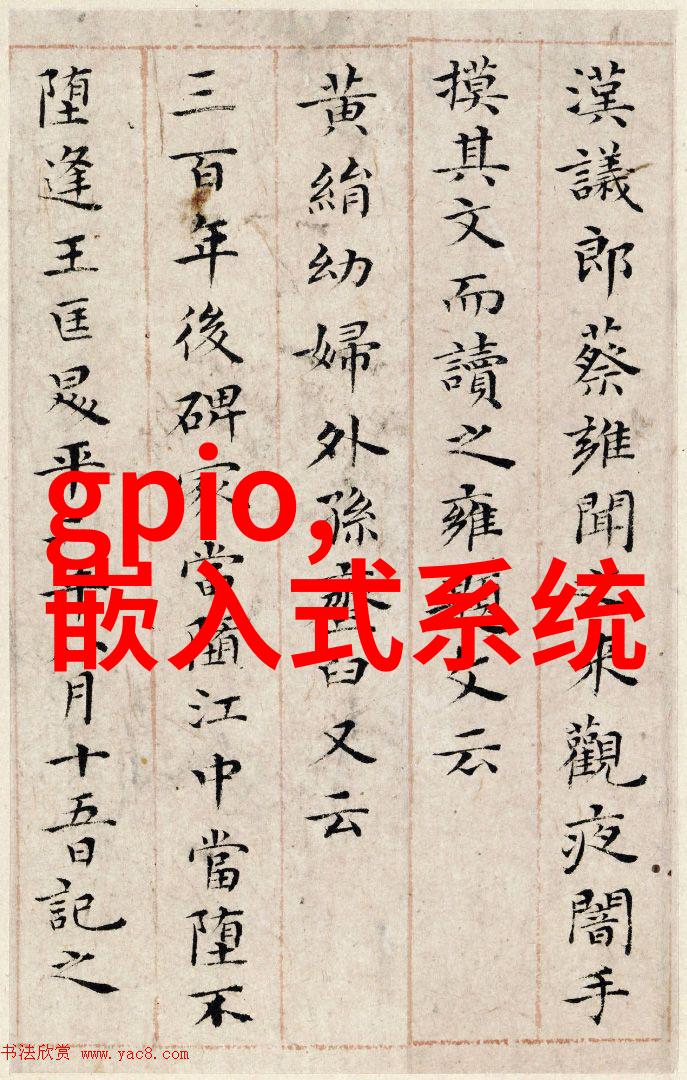 漢議郎蔡雍聞來觀夜闇手
摸其文而讀之雍文云
黃絹幼婦外孫臼又云
三百年後碑冢當江中當堕不
堕逢王匡昇平年八月十五日記之
gpio,
嵌入式系统
书法欣赏 www.yac8.com